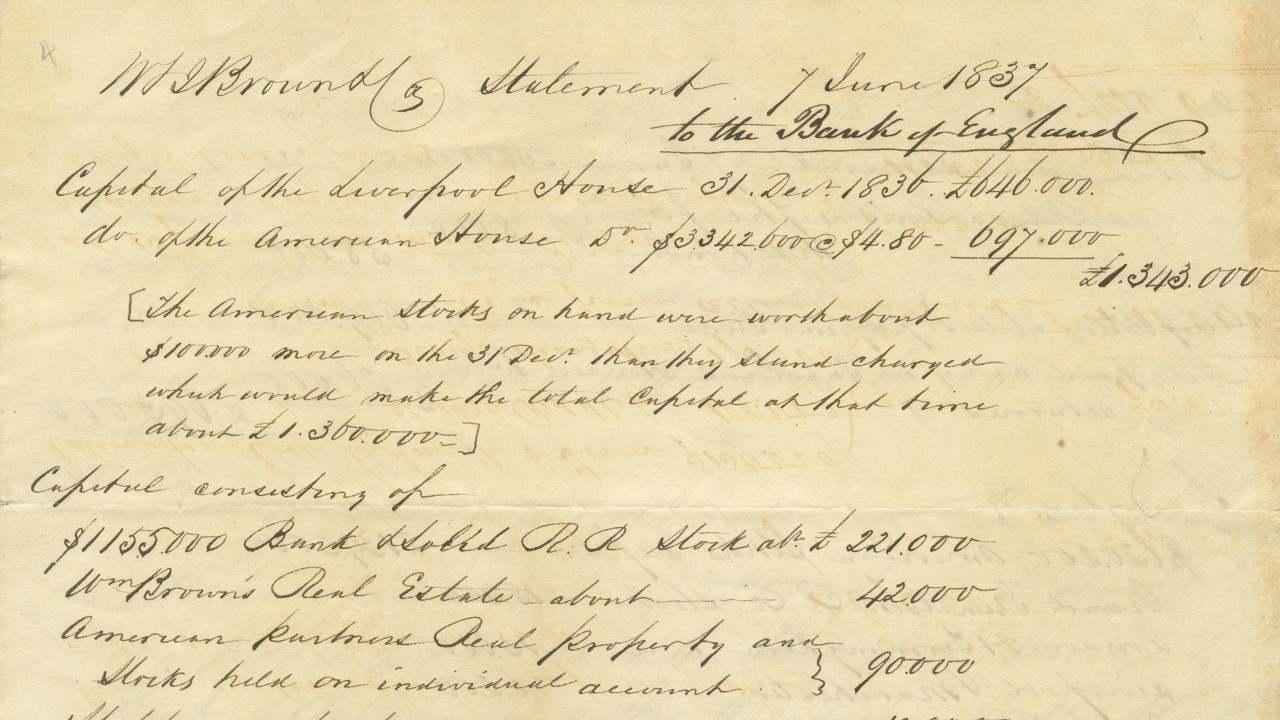 4
W & J Brown & Co Statement 7 June 1837
to the Bank of England
Capital of the Liverpool House 31. Decr. 1836. £646.000.
do. of the American House Do. $3.342.600 @ $4.80 - 697.000
£1.343.000
[The American Stocks on hand were worth about
$100.000 more on the 31 Decr. than they stand charged
which would make the total Capital at that time
about £1.360.000-]
Capital consisting of
$1155.000 Bank & R. R Stock abt. £ 221.000
Wm Brown's Real Estate about 42.000
American partners Real property and
Stocks held on individual account } 90000